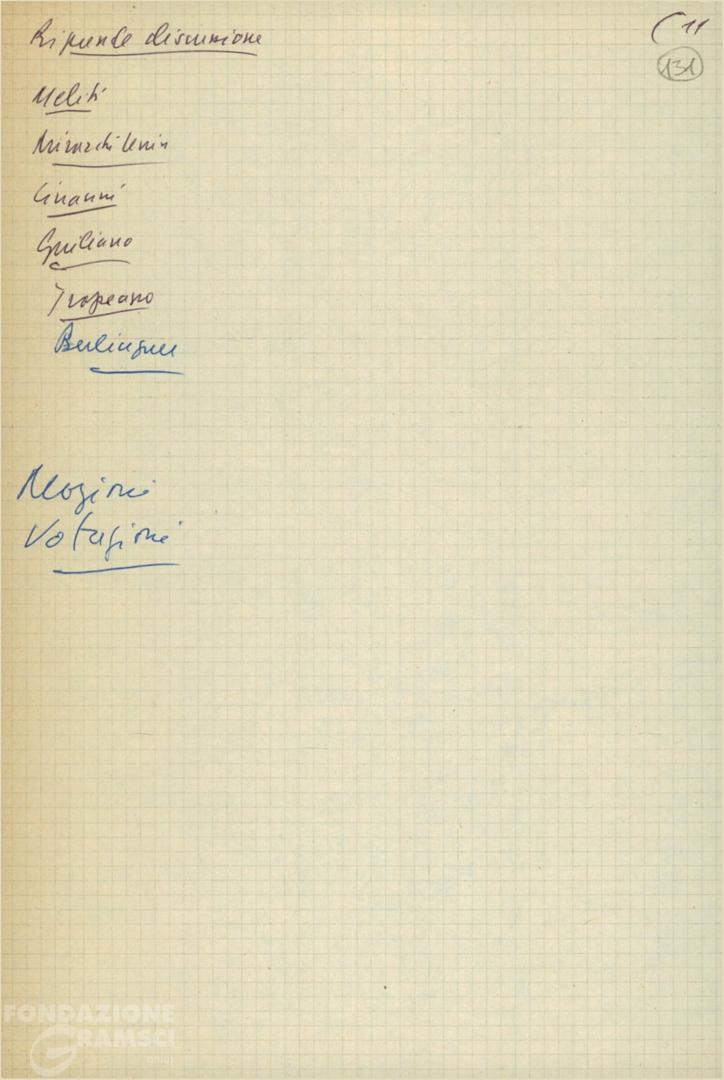 Riprende discussione
(11
131
Meliti
Mirarchi Lenin
Cinanni
Giuliano
Tropeano
Berlinguer
Mozioni
Votazioni
FONDAZIONE
GRAMSCI